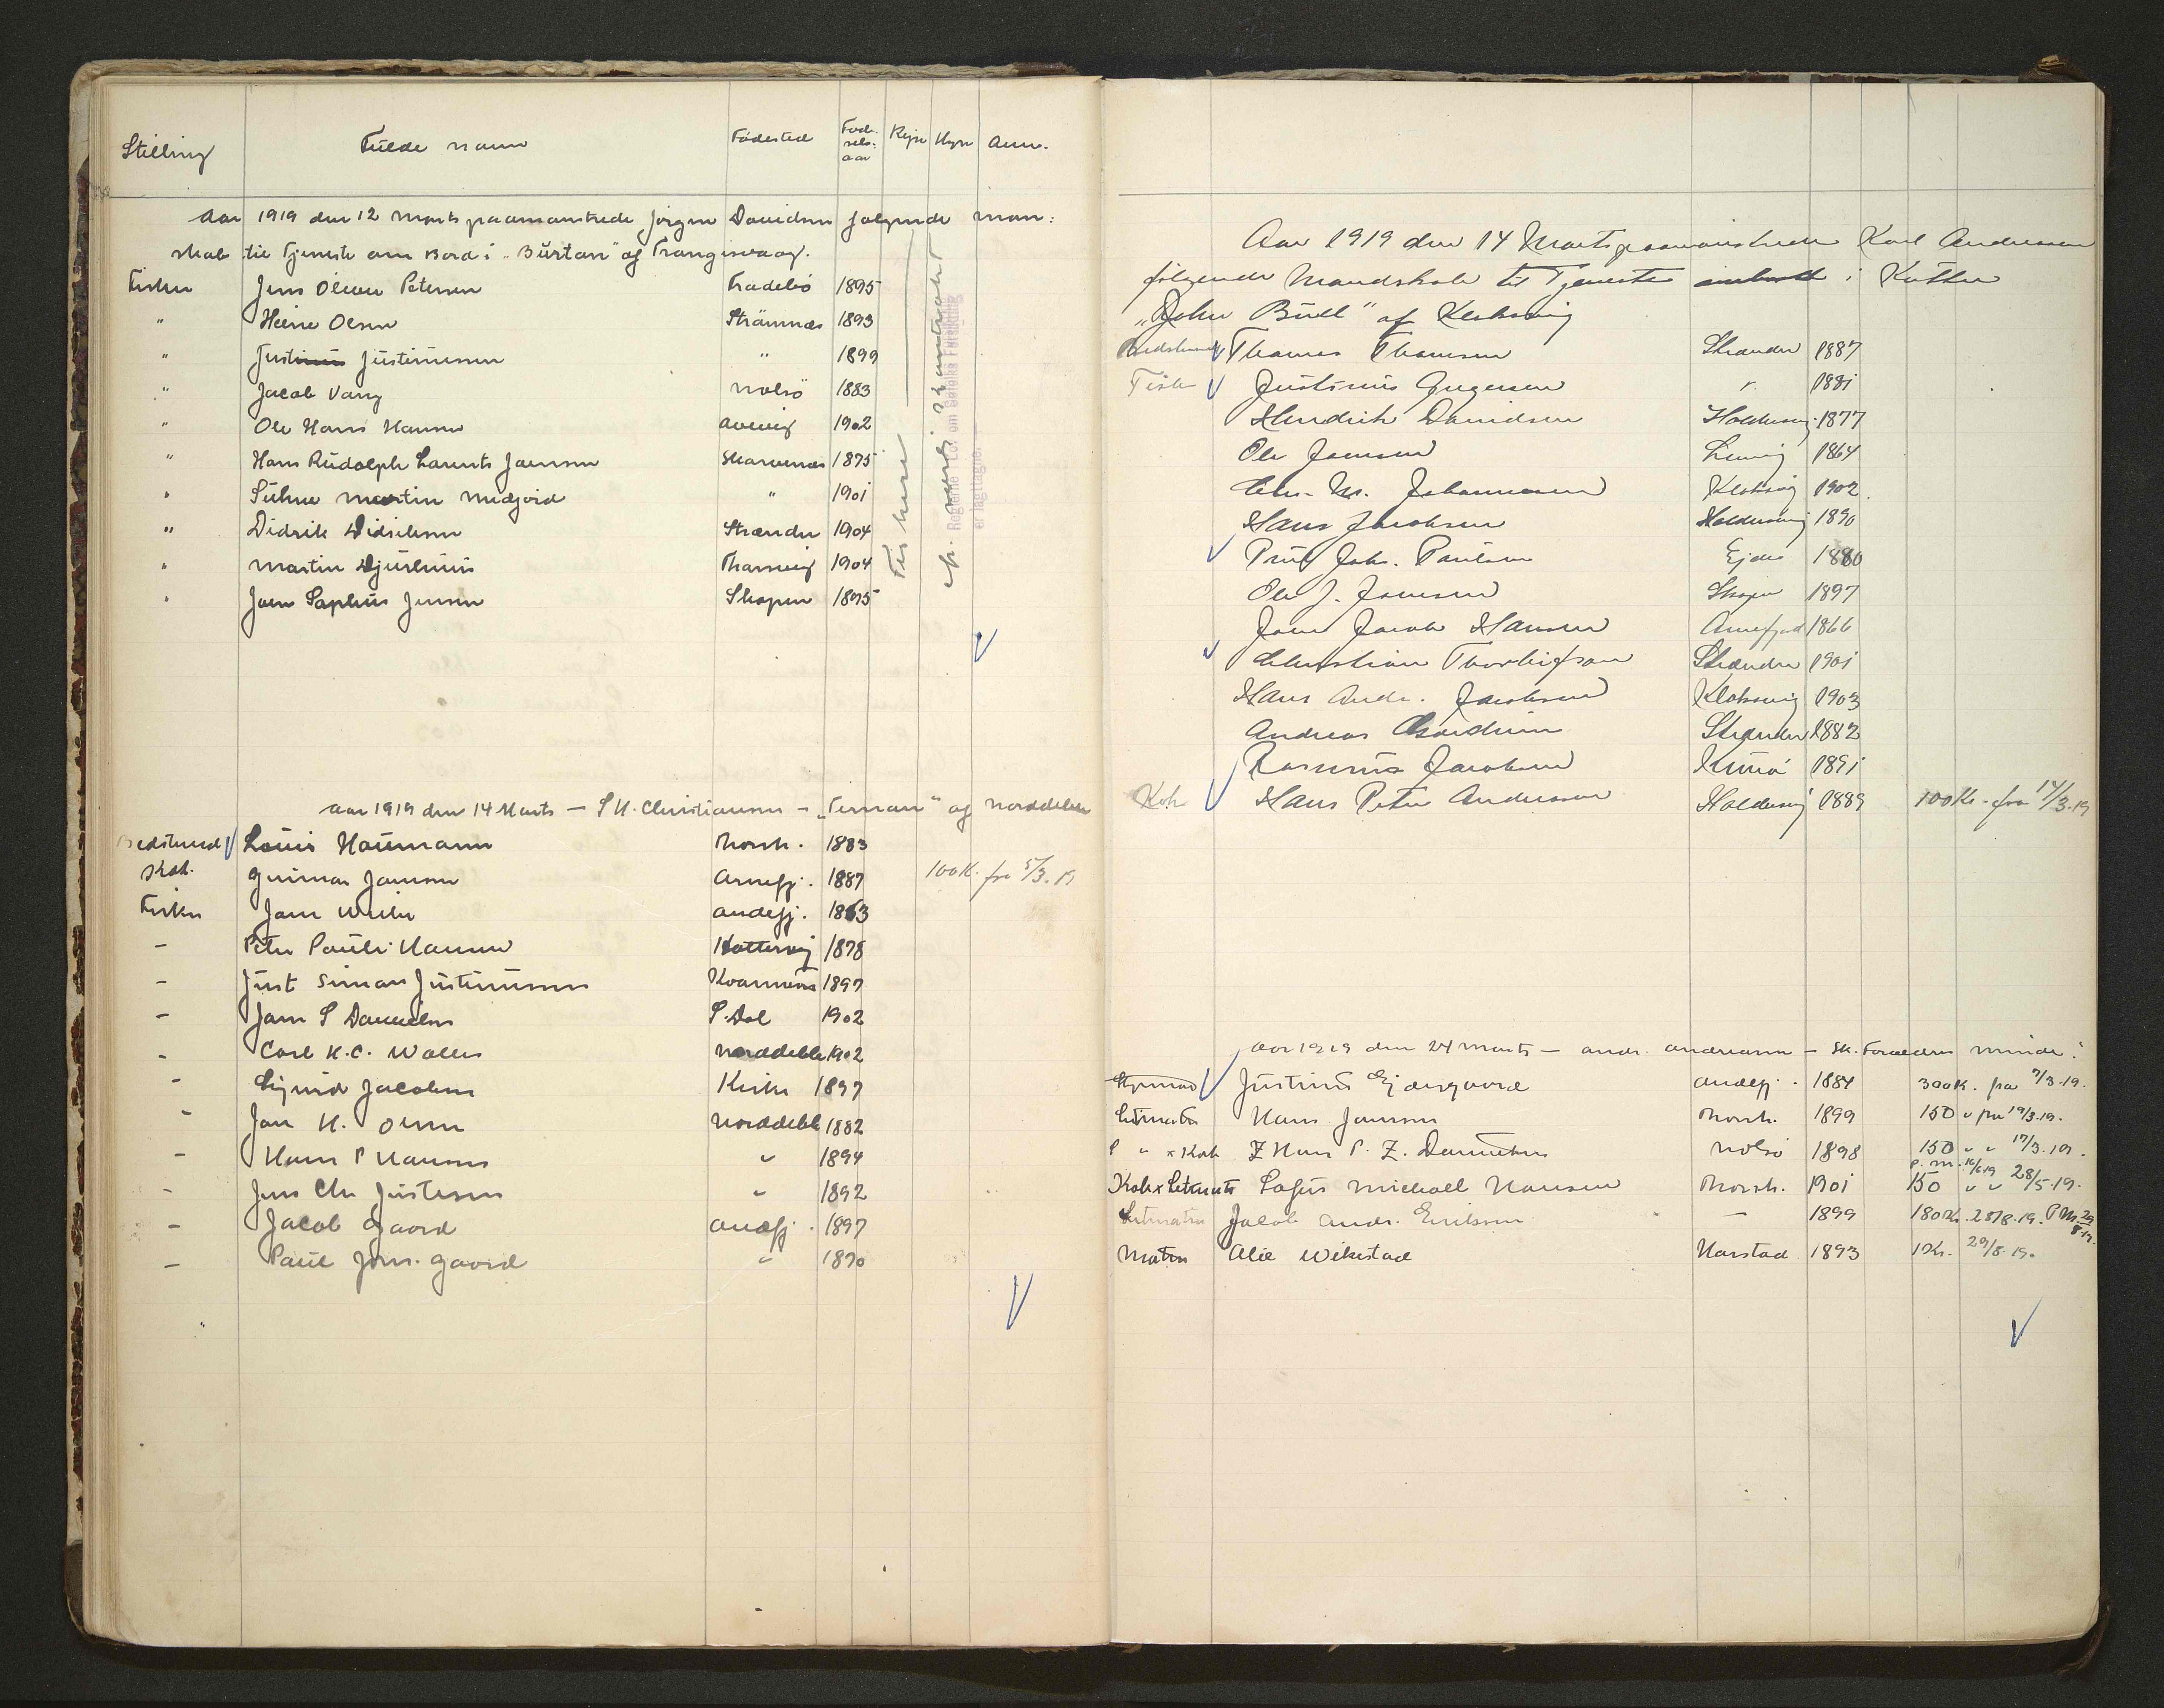 Stilling Fulde navn Fødested Fød-sels-aar Hyre Hyre Anm.
Aar 1919 den 12 Marts paamønstrede Jørgen Davidsen følgende mand-
skab til Tjeneste om Bord i "Burton" af Trangisvaag.
Fisker Jens Oliver Petersen Frodebø 1895
" Heine Olsen Strømnæs 1893
" Justinussen " 1899
" Jacob Vang Nolsø 1883
" Ole Hans Hansen 1902
" Hans Rudolph Laurits Joensen Skarvenæs 1875
" Martin Midjord " 1901
" Didrik Didriksen Strænder 1904
" Martin Djurhuus 1904
" Joen Jensen Skopen 1895
Fiskere
Reglerne i Lov om Søfolks Forhold
er iagttagne.
Aar 1919 den 14 Marts – S H. Christiansen – "Ternan" af Norddeble
Bedstmand Louis Haumann Thorsh. 1883
Kok. Gunnar Joensen Arnefj. 1887 100 K. fra 5/3.19
Fisker Andefj. 1863
– Peter Pauli Hansen Hattervig 1878
– Just Simon Justinussen Kvannesund 1897
– Joen S Danielsen S. Dal 1902
– Carl H.C. Norddeble 1902
– Jacobsen Kirke 1897
– Joen H. Olsen Norddeble 1882
– Hans P Hansen " 1894
– Jens Chr Justesen " 1892
– Jacob Gaard Andefj. 1897
– Paul Joens. Gaard " 1870
Aar 1919 den 14 Marts paamønstrede Karl Andreasen
følgende Mandskab til Tjeneste ombord i Kutter
"John Bull" af Klaksvig
Bedstmand Thomas Thomsen Strænder 1887
Fisker Justinus Gregersen " 1881
Hendrik Davidsen Haldersvig 1877
Ole Joensen 1864
Chr. M. Johannesen Klaksvig 1902
Hans Jacobsen Haldersvig 1890
Joh. Poulsen Ejde 1880
Ole J. Joensen Skopen 1897
Joen Jacob Hansen Arnefjord 1866
Christian Thorleifson Strænder 1901
Hans Andr. Jacobsen Klaksvig 1903
Andreas Strænder 1882
Rasmus Jacobsen Kunø 1891
Kok Hans Peter Andreasen Haldersvig 1889 100 Kr. fra 14/3.19
Aar 1919 den 24 Marts – Andr. Andreasen – Sk. Forældres Minde.
Styrmand Justinus Ejdesgaard Andefj. 1884 300 K. fra 7/3.19.
Letmatros Hans Joensen Thorsh. 1899 150 " fra 19/3.19.
" x Kok Hans P. Z. Danielsen Nolsø 1898 150 " " 17/3.19.
Kok x Letmats Sofus Michael Hansen Thorsh. 1901 150 " " 28/5.19.
Letmatros Jacob Andr. Eriksen – 1899 180 Kr. 28/8.19.
Matros Alie Wikestad Harstad 1893 1 Kr. 29/8.19.